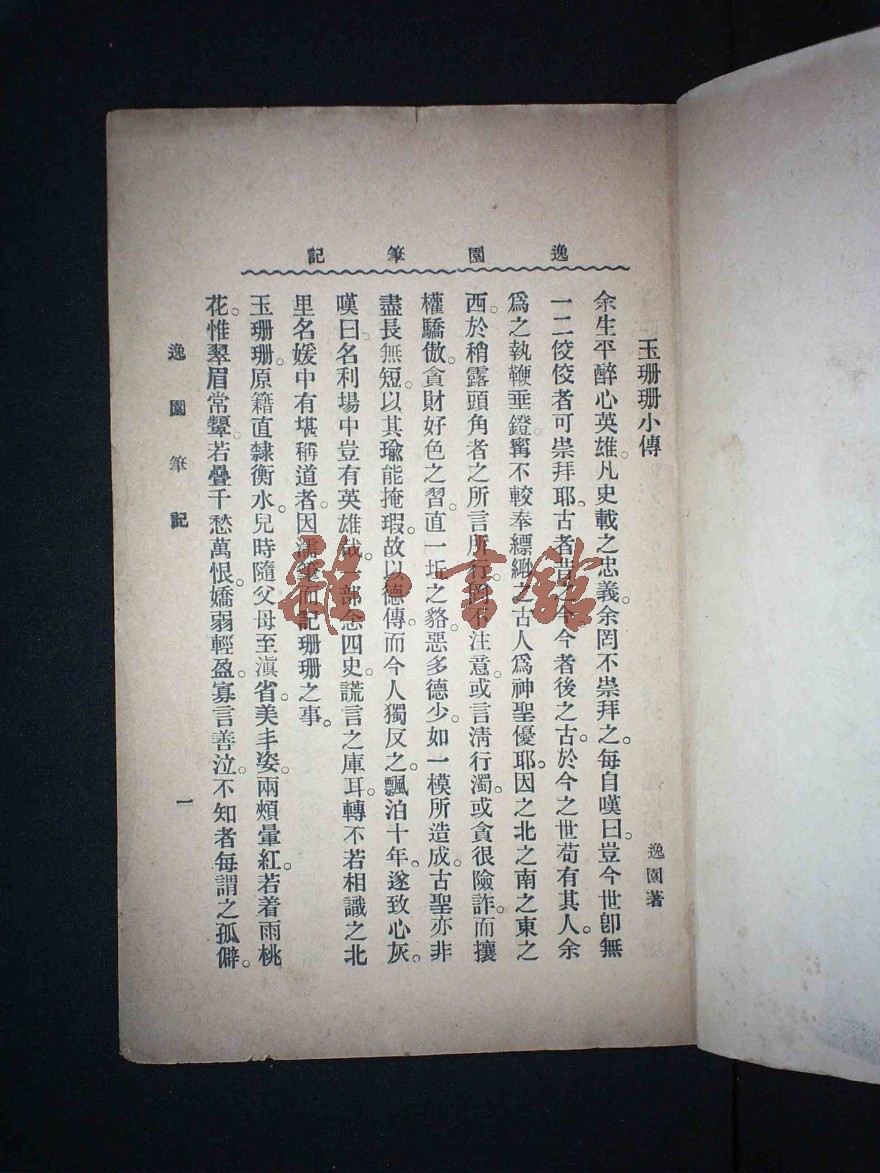 逸園筆記
玉珊珊小傳
逸園著
余生平醉心英雄。凡史載之忠義。余罔不崇拜之。每自嘆曰。豈今世卽無
一二佼佼者可崇拜耶。古者昔之今。今者後之古。於今之世苟有其人。余
爲之執鞭垂鐙。甯不較奉縹緲之古人爲神聖優耶。因之北之南之東之
西。於稍露頭角者之所言所行。罔不注意。或言淸行濁。或貪很險詐。而攘
權驕傲。貪財好色之習。直一坵之貉。惡多德少。如一模所造成。古聖亦非
盡長無短。以其瑜能掩瑕。故以德傳。而今人獨反之。飄泊十年。遂致心灰。
嘆曰名利場中豈有英雄哉。部念四史。謊言之庫耳。轉不若相識之北
里名媛中有堪稱道者。因濡筆而記珊珊之事。
玉珊珊。原籍直隸衡水。兒時隨父母至滇省。美丰姿。兩頰暈紅。若着雨桃
花。惟翠眉常顰。若疊千愁萬恨。嬌弱輕盈。寡言善泣。不知者每謂之孤僻。
逸園筆記
一
雜·書館